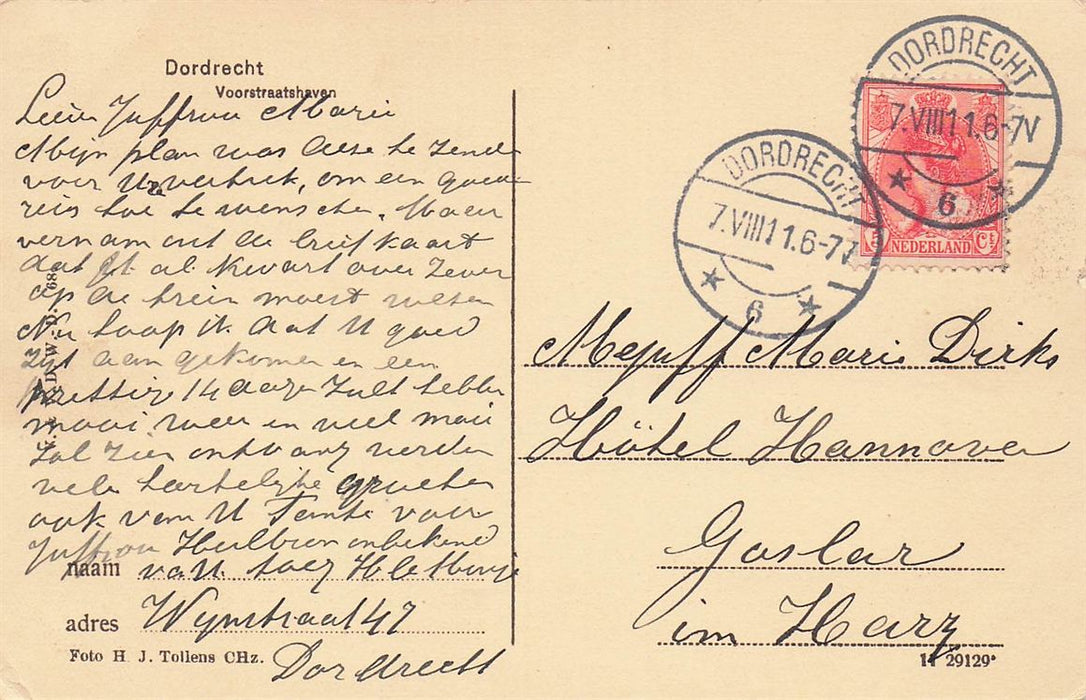 Dordrecht
Voorstraatshaven
Juffrou Marie
Mijn plan was te zende
voor U vertrek, om een goed
reis toe te wensche. Maar
vernam uit de briefkaart
dat al kwart over zeven
op de trein moest weten
Nu hoop ik dat U goed
zijt aan gekomen en een
prettig 14 dage zult hebbe
mooi weer en veel mooi
zal zien ontvang verder
vele hartelijke groeten
ook van U Tante voor
Juffrou onbekend
naam van
adres Wijnstraat 47
Dordrecht
Foto H. J. Tollens CHz.
DORDRECHT
7.VIII.11.6-7N
6
DORDRECHT
7.VIII.11.6-7N
6
5 NEDERLAND Ct
Mejuff Marie Dirks
Hôtel Hannover
Goslar
im Harz
11 29129*